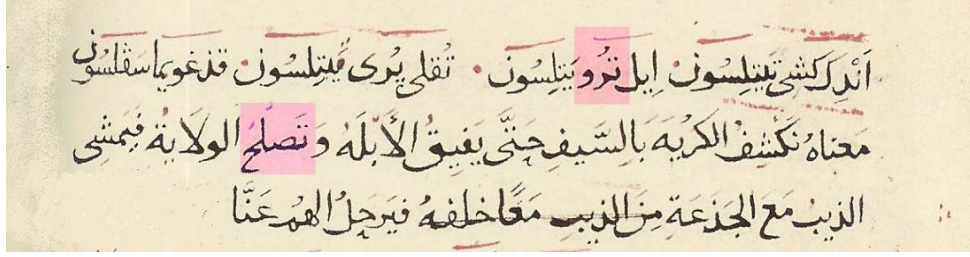 اَنْدِكَ كَشِى تَيتِلِسُونْ اِيلَ تُرُو يَتِلِسُون تُقلِى يُرى مَيتِلِسُون قَذغو يما سَڤلسُون
مَعناهُ نكشِفُ الكَرُيهَةَ بَالسَّيفِ حَتَّى يَفِيقُ الأَبلَهُ وَتَصلُحُ الولَايةُ فيَمشِى
الذيبُ مَع الجَذعَةِ مِنَ الذيبِ مَعًا خلفهُ فيَرحلُ الهمُ عَنَّا